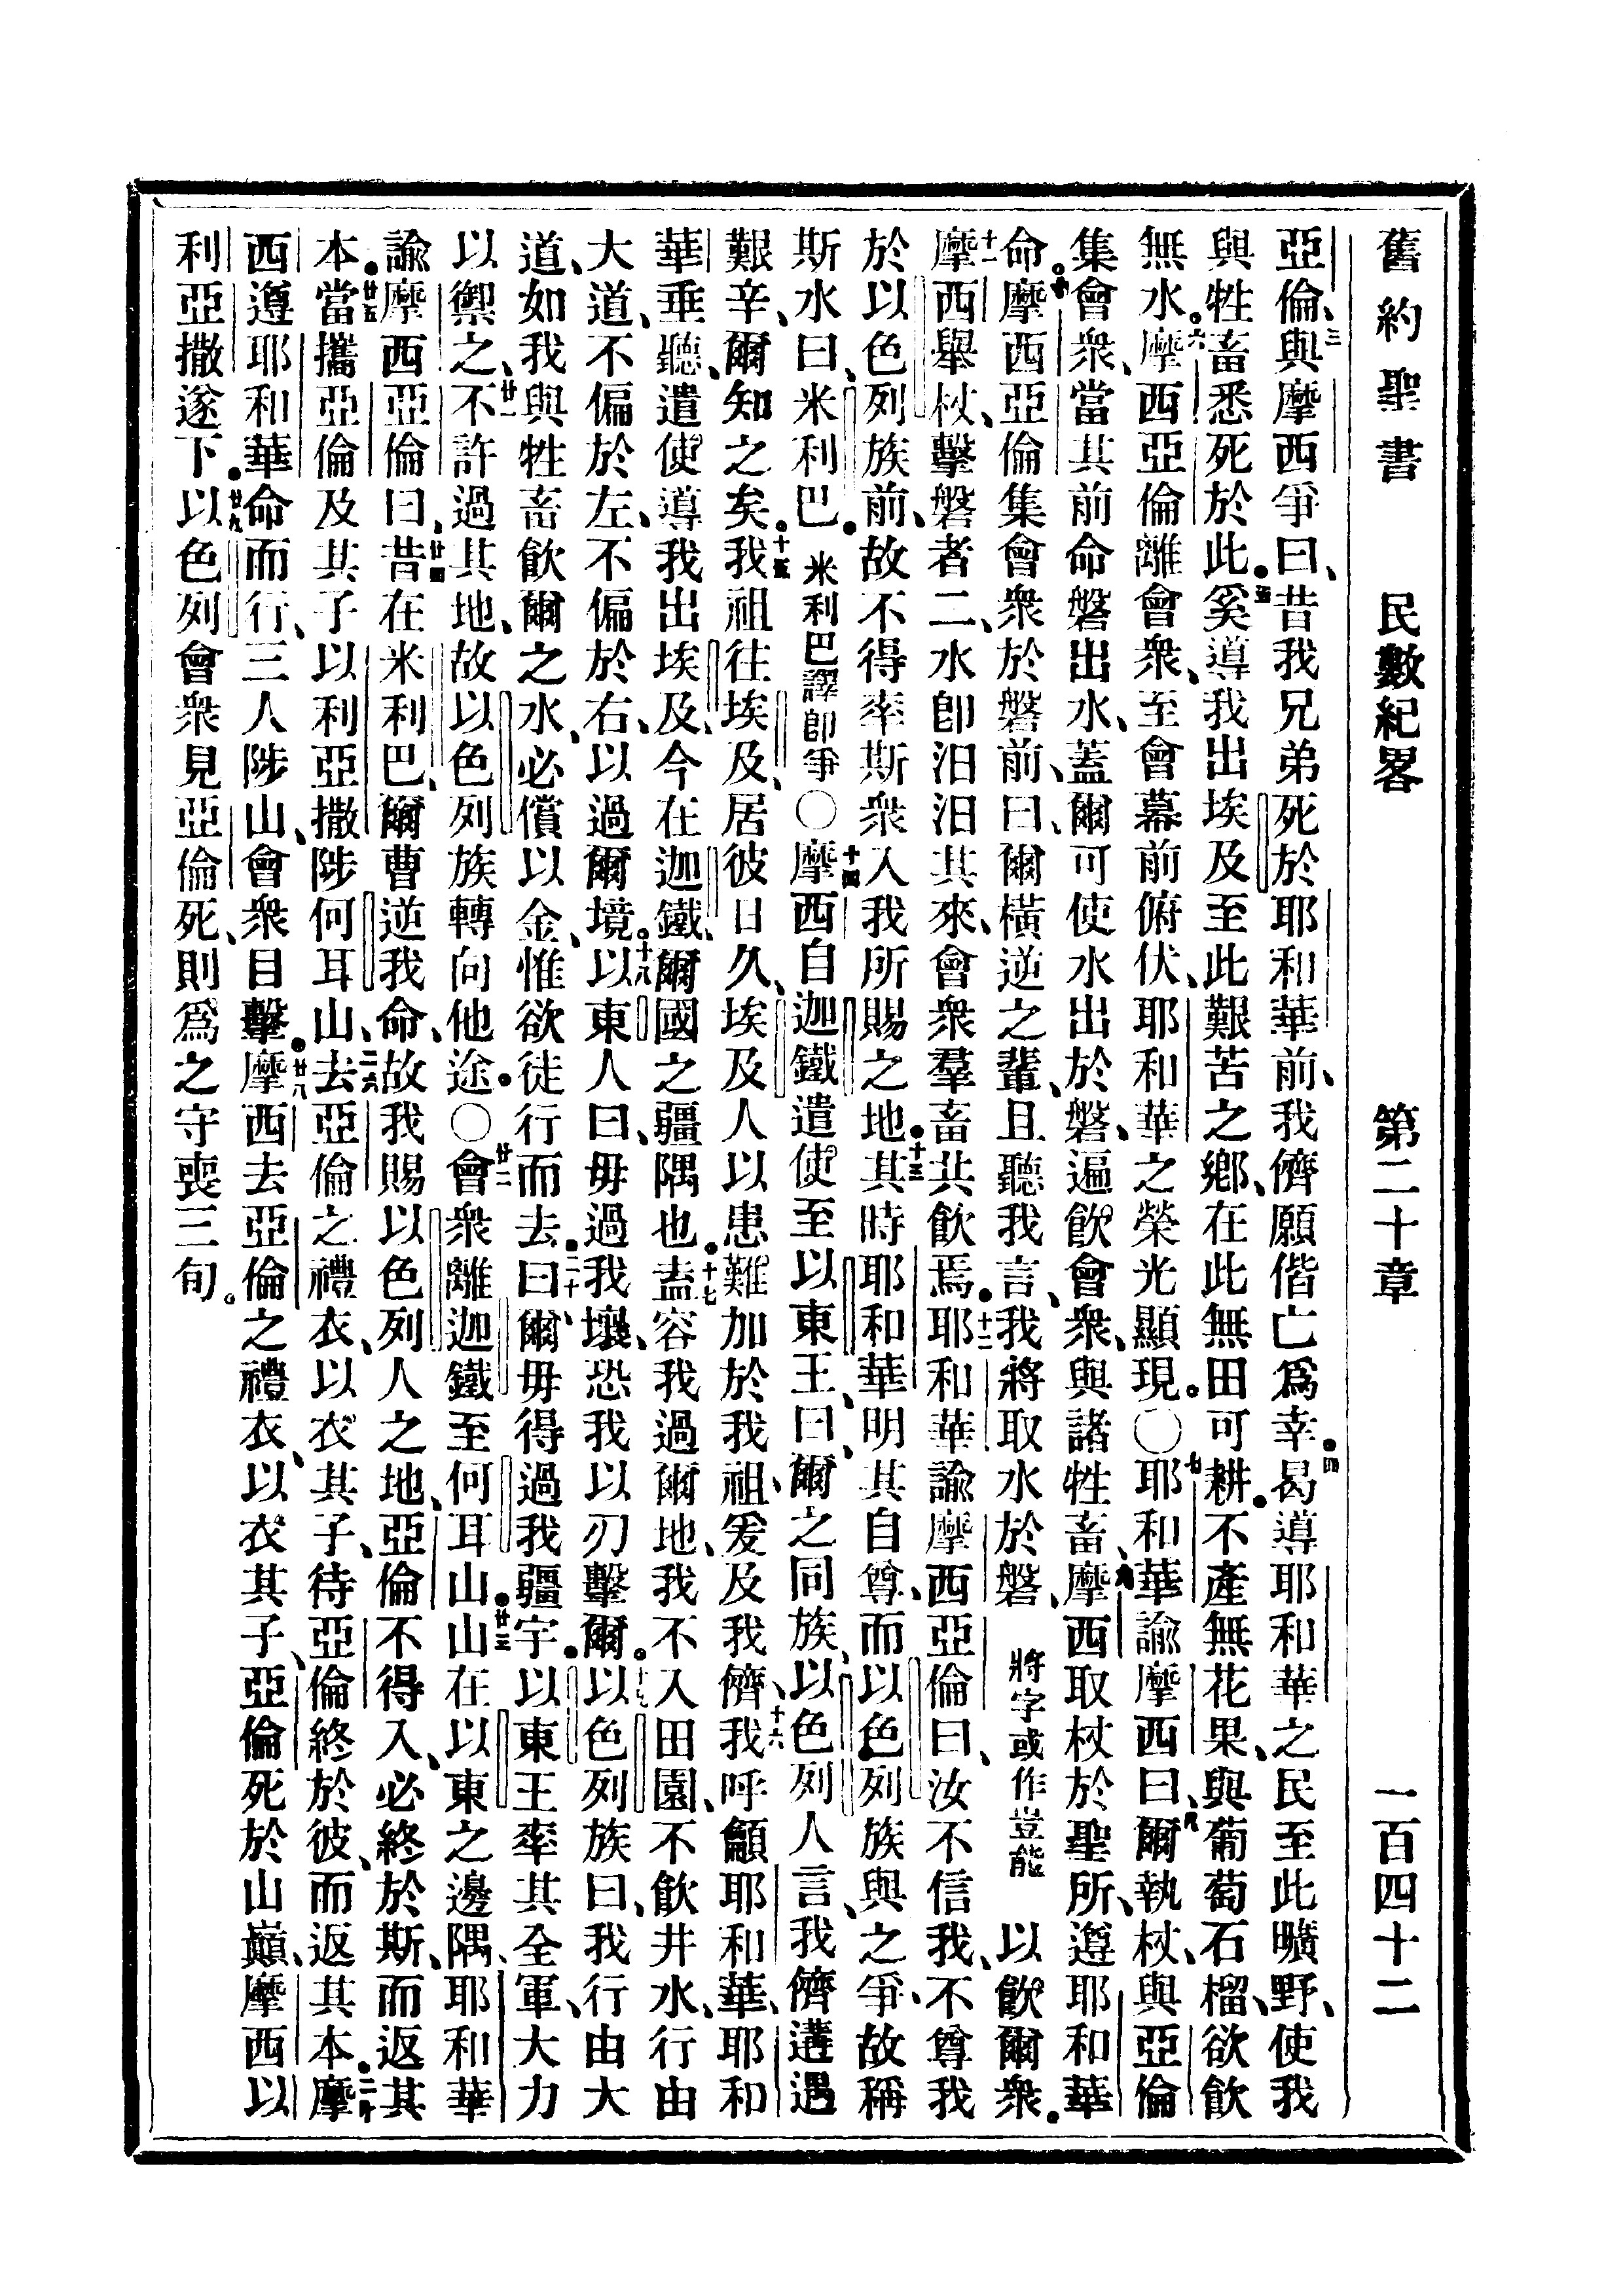 舊約聖書 民數紀畧 第二十章 一百四十二
亞倫、三與摩西爭曰、昔我兄弟死於耶和華前、我儕願偕亡爲幸。四曷導耶和華之民至此曠野、使我
與牲畜悉死於此。五奚導我出埃及至此艱苦之鄉、在此無田可耕、不產無花果、與葡萄石榴、欲飲
無水。六摩西亞倫離會衆、至會幕前俯伏、耶和華之榮光顯現。〇七耶和華諭摩西曰、八爾執杖、與亞倫
集會衆、當其前命磐出水、蓋爾可使水出於磐、遍飲會衆、與諸牲畜、九摩西取杖於聖所、遵耶和華
命。十摩西亞倫集會衆於磐前、曰、爾橫逆之輩、且聽我言、我將取水於磐、將字或作豈能以飲爾衆。
十一摩西舉杖、擊磐者二、水卽汨汨其來、會衆羣畜共飲焉。十二耶和華諭摩西亞倫曰、汝不信我、不尊我
於以色列族前、故不得率斯衆入我所賜之地。十三其時耶和華明其自尊、而以色列族與之爭、故稱
斯水曰、米利巴。米利巴譯卽爭〇十四摩西自迦鐵遣使至以東王、曰、爾之同族、以色列人言、我儕遘遇
艱辛、爾知之矣。十五我祖往埃及、居彼日久、埃及人以患難加於我祖、爰及我儕、十六我呼籲耶和華、耶和
華垂聽、遣使導我出埃及、今在迦鐵、爾國之疆隅也。十七盍容我過爾地、我不入田園、不飲井水、行由
大道、不偏於左、不偏於右、以過爾境。十八以東人曰、毋過我壤、恐我以刃擊爾。十九以色列族曰、我行由大
道、如我與牲畜飲爾之水、必償以金、惟欲徒行而去。二十曰、爾毋得過我疆宇。以東王率其全軍、大力
以禦之、廿一不許過其地、故以色列族轉向他途。〇廿二會衆離迦鐵至何耳山。廿三山在以東之邊隅、耶和華
諭摩西亞倫曰、廿四昔在米利巴、爾曹逆我命、故我賜以色列人之地、亞倫不得入、必終於斯、而返其
本。廿五當攜亞倫及其子以利亞撒陟何耳山、二六去亞倫之禮衣、以衣其子、待亞倫終於彼、而返其本。二十七摩
西遵耶和華命而行、三人陟山、會衆目擊。廿八摩西去亞倫之禮衣、以衣其子、亞倫死於山巔、摩西以
利亞撒遂下。廿九以色列會衆見亞倫死、則爲之守喪三旬。